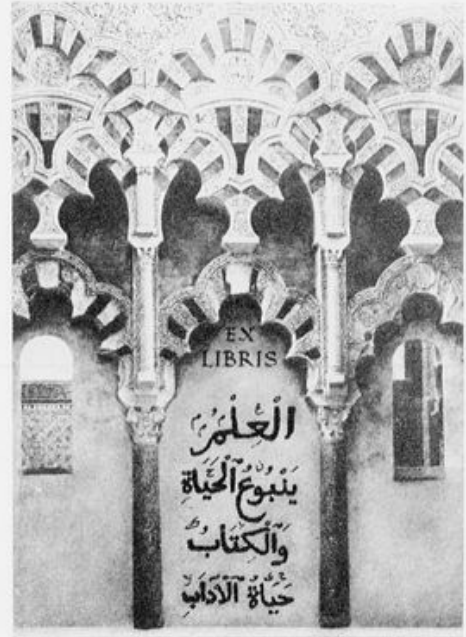 EX
LIBRIS
الْعِلْمُ
يَنْبُوعُ ٱلْحَيَاةِ
وَٱلْكِتَابُ
حَيَاةُ ٱلْآدَابِ